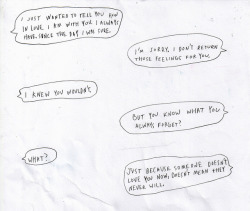 I JUST WANTED TO TELL YOU HOW
IN LOVE I AM WITH YOU. I ALWAYS
HAVE SINCE THE DAY I WAS SURE.
I'M SORRY, I DON'T RETURN
THOSE FEELINGS FOR YOU.
I KNEW YOU WOULDN'T.
BUT YOU KNOW WHAT YOU
ALWAYS FORGET?
WHAT?
JUST BECAUSE SOMEONE DOESN'T
LOVE YOU NOW, DOESN'T MEAN THEY
NEVER WILL.